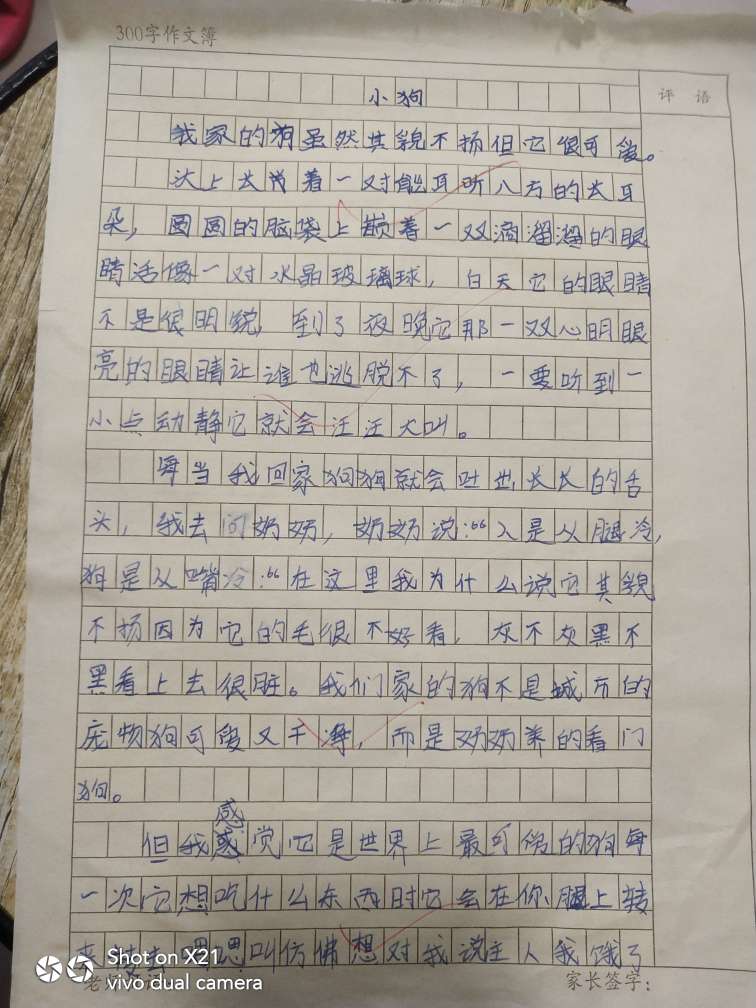 300字作文簿
评 语
小狗
我家的狗虽然其貌不扬但它很可爱。
头上长着一对能耳听八方的大耳
朵，圆圆的脑袋上嵌着一双滴溜溜的眼
睛活像一对水晶玻璃球，白天它的眼睛
不是很明锐，到了夜晚它那一双心明眼
亮的眼睛让谁也逃脱不了，一要听到一
小点动静它就会汪汪大叫。
每当我回家狗狗就会吐出长长的舌
头，我去问奶奶，奶奶说：“人是从腿冷，
狗是从嘴冷：“在这里我为什么说它其貌
不扬因为它的毛很不好看，灰不灰黑不
黑看上去很脏。我们家的狗不是城市的
庞物狗可爱又干净，而是奶奶养的看门
狗。
感
但我感觉它是世界上最可爱的狗每
一次它想吃什么东西时它会在你腿上转
叫仿佛想对我说主人我饿了
Shot on X21
vivo dual camera
家长签字：